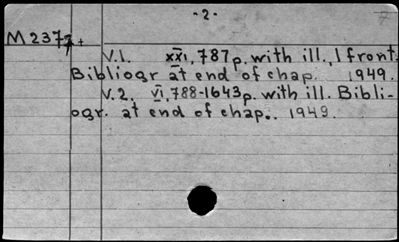 - 2 - 7
M 2377+
V.1. XXI, 787 p. with ill., 1 front.
Bibliogr at end of chap. 1949.
V.2. VI, 788-1643 p. with ill. Bibli-
ogr. at end of chap.. 1949.